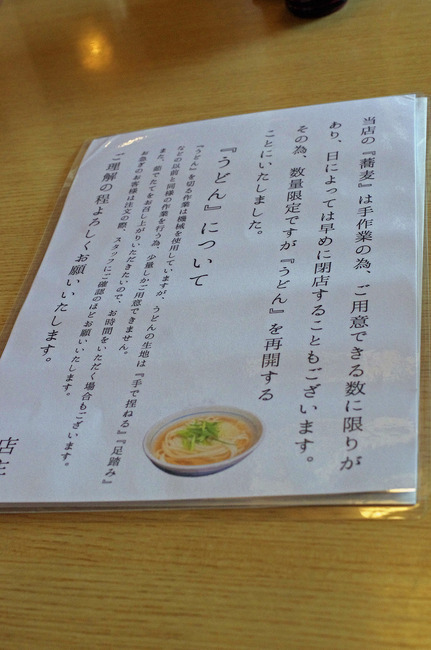 当店の『蕎麦』は手作業の為、ご用意できる数に限りが
あり、日によっては早めに閉店することもございます。
その為、数量限定ですが『うどん』を再開する
ことにいたしました。
『うどん』について
『うどん』を切る作業は機械を使用していますが、うどんの生地は『手で捏ねる』『足踏み』
などの以前と同様の作業を行う為、少量しかご用意できません。
また、茹でたてをお召し上がりいただきたいので、お時間をいただく場合もございます。
お急ぎのお客様は注文の際、スタッフにご確認のほどお願いいたします。
ご理解の程よろしくお願いいたします。
店主